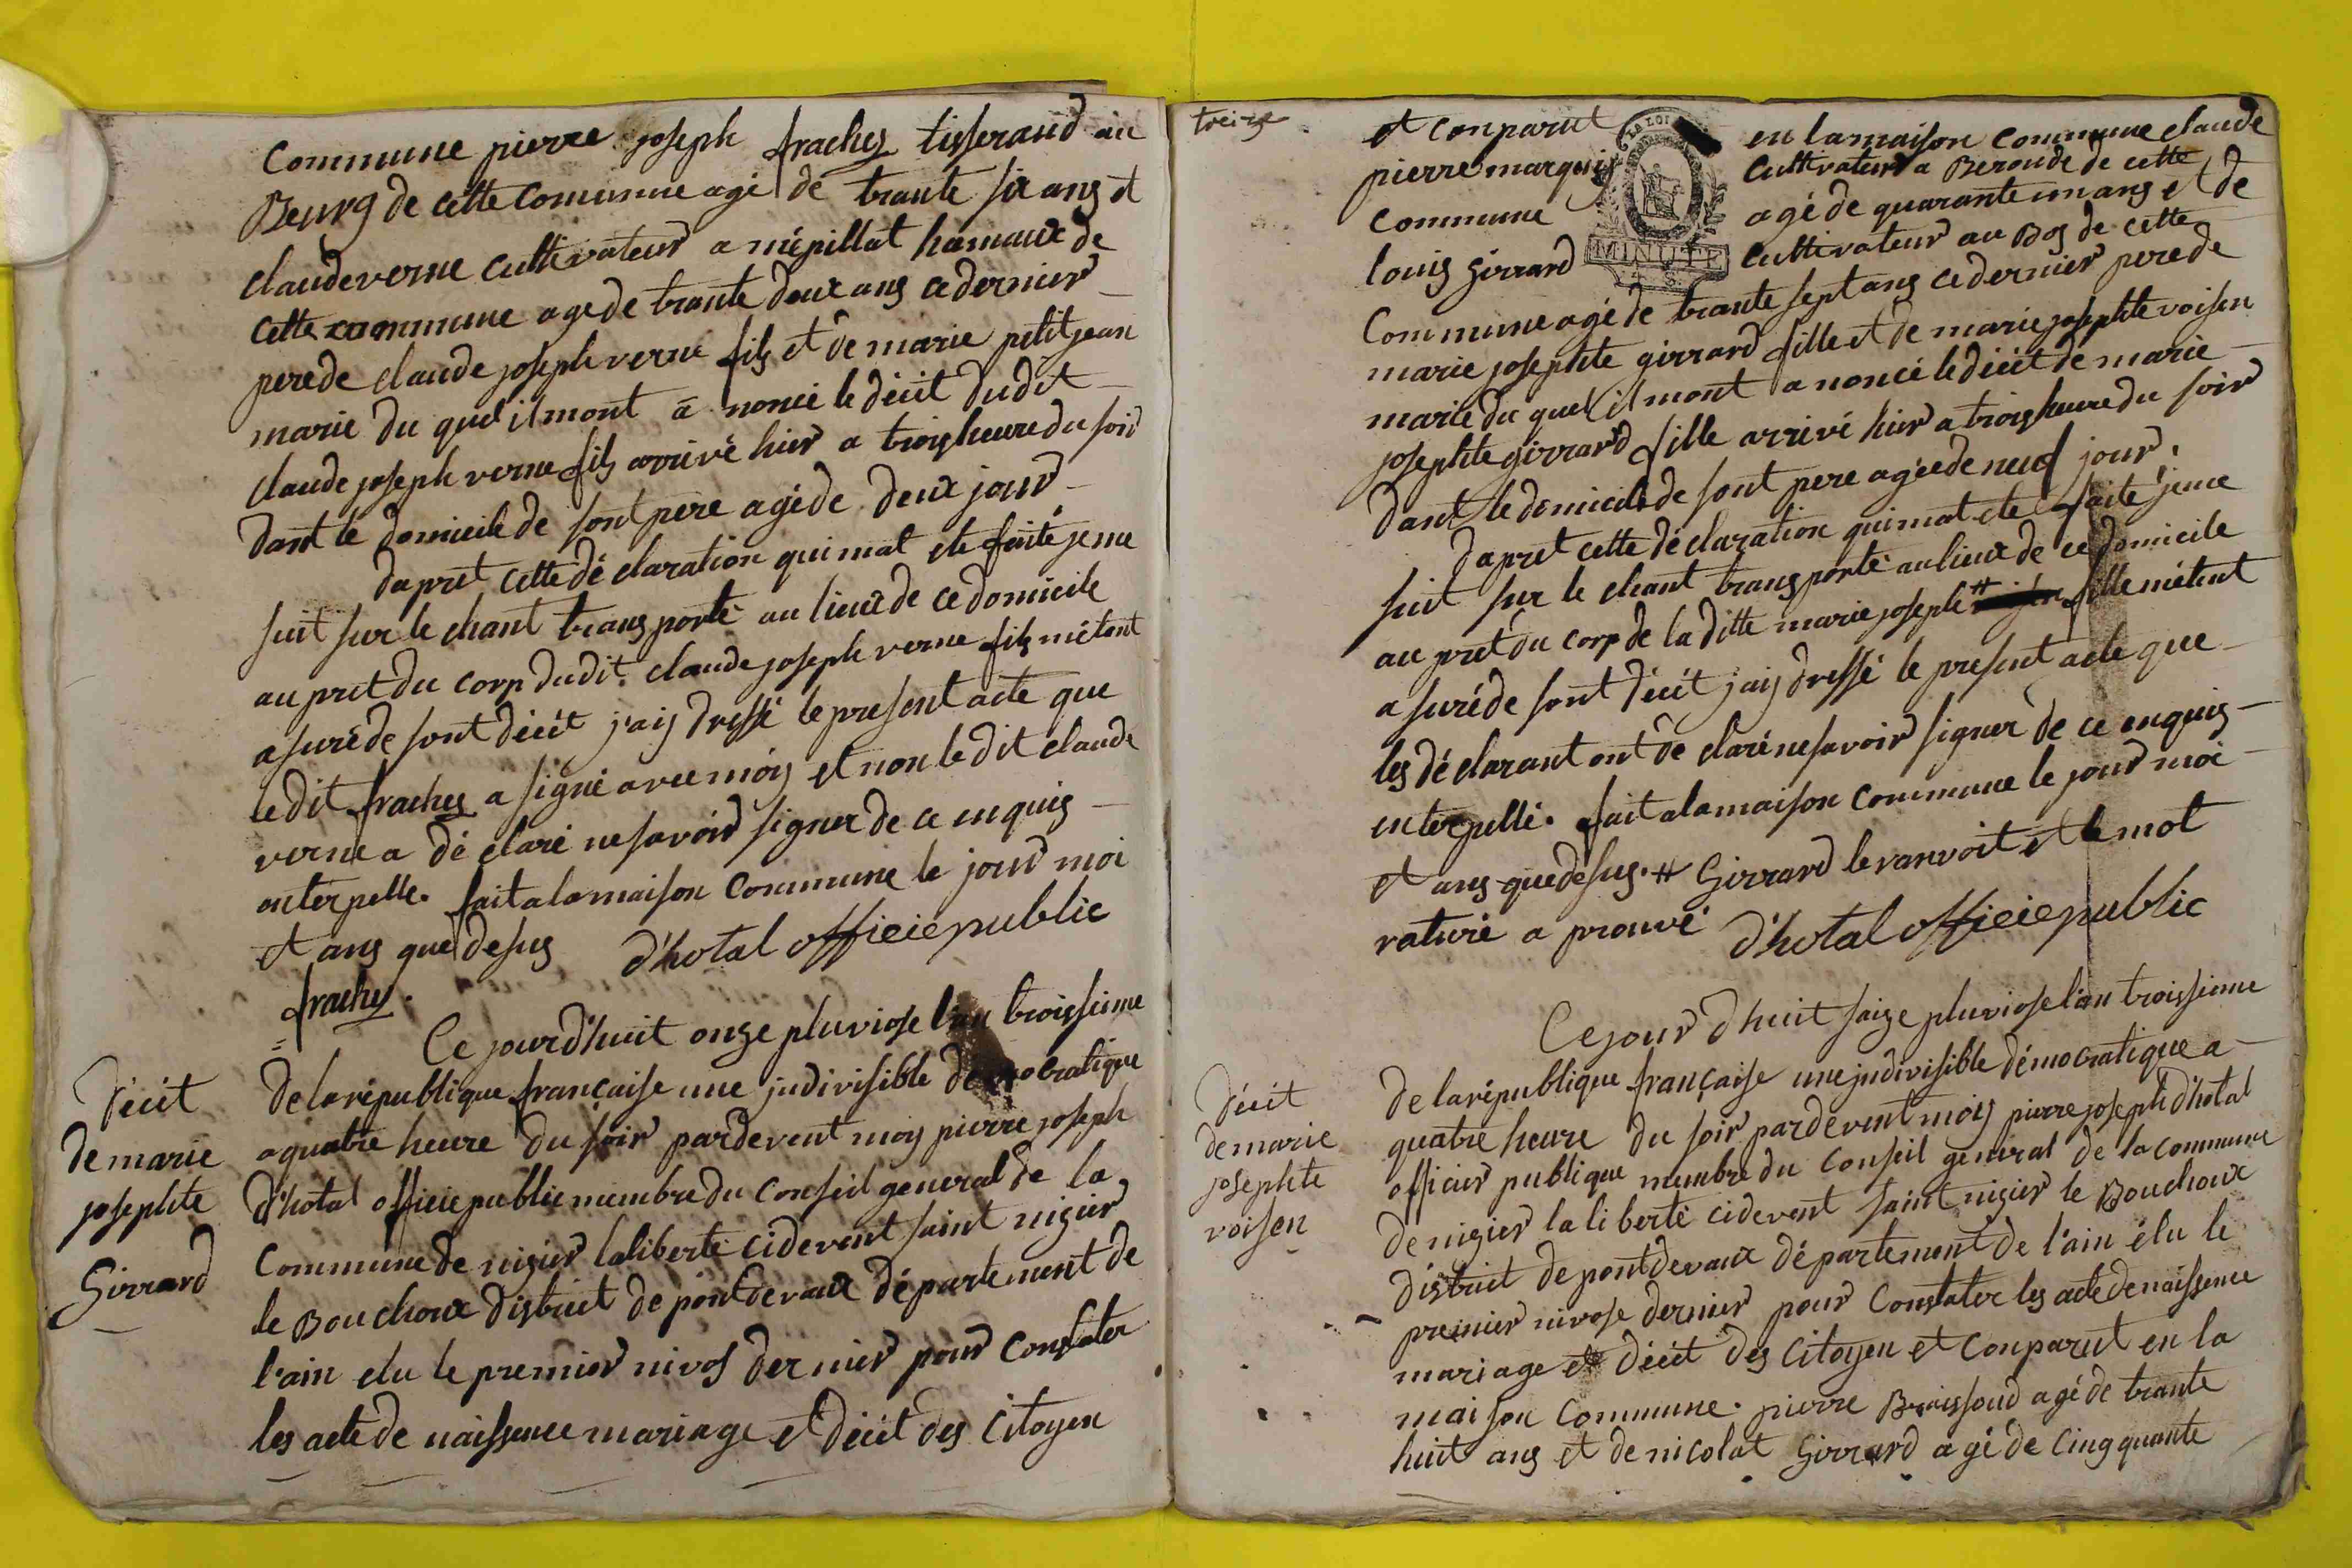 Commune pierre joseph frachey tisserand au
Beurg de cette Commune agé de trante six ans et
claude verne cultivateur a mépillat hamaux de
cette commune age de trante deux ans ce dernier
pere de claude joseph verne fils et de marie petitjean
marie du quel il mont a noncé le décit dudit
claude joseph verne fils arrivé hier a trois heure du soir
dant le domicile de sont pere agé de deux jour
dapret cette déclaration qui mat ete faite je me
suit sur le chant transporté au lieux de ce domicile
au pret du corp dudit claude joseph verne fils métent
asuré de sont décit j'aij dressé le present acte que
ledit frachey a signé avec moij et non ledit claude
verne a déclaré ne savoir signer de ce enquis
enterpelle. fait a la maison Commune le jour moi
et ans que desus d'hotal officie public
frachey.
décit
de marie
josephte
Girrard
Ce jourd'huit onze pluviose l'an troissieme
de la république française une indivisible démocratique
a quatre heure du soir pardevent moij pierre joseph
d'hotal officie public membre du conseil general de la
Commune de nizier la liberté cidevent saint nizier
le Bouchoux district de pontdevaux département de
l'ain elu le premier nivos dernier pour Constater
les acte de naissence mariage et décit des Citoyen
treize
et conparut en la maison Commune claude
pierre marquis cultivateur a Beroude de cette
Commune agé de quarante un ans et de
louis Girrard cultivateur au Bos de cette
LA LOI
MINUTE
Commune agé de trante sept ans ce dernier pere de
marie josephte girrard fille et de marie josephte voisen
marie du quel il mont a noncé le décit de marie
josephte girrard fille arrivé hier a trois heure du soir
dant le domicile de sont pere agée de neuf jour.
dapret cette déclaration qui mat ete faite je me
suit sur le chant transporté au lieux de ce domicile
au pret du corp de la ditte marie joseph # fille métent
asuré de sont décit j'aij dressé le present acte que
les déclarant ont déclaré ne savoir signer de ce enquis
enterpellé. fait a la maison Commune le jour moi
et ans que desus. # Girrard le ranvoit et le mot
raturé a prouvé d'hotal officie public
décit
de marie
josephte
voisen
Ce jour d'huit saize pluviose l'an troissieme
de la république française une indivisible démocratique a
quatre heure du soir pardevent moij pierre joseph d'hotal
officier publique membre du Conseil general de la commune
de nizier la liberté cidevent saint nizier le Bouchoux
district de pontdevaux département de l'ain élu le
premier nivose dernier pour Constater les acte de naissence
mariage et décit des Citoyen et Conparut en la
maison Commune. pierre Broissoud agé de trante
huit ans et de nicolat Girrard agé de Cinqquante